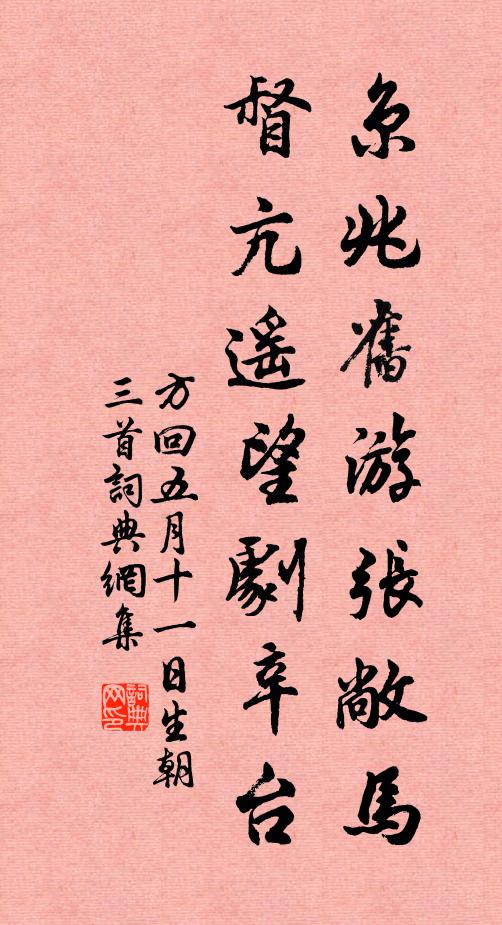 京兆舊游張敞馬
督亢遥望劇辛台
方回五月十一日生朝
三首詞典網集
詞典网印